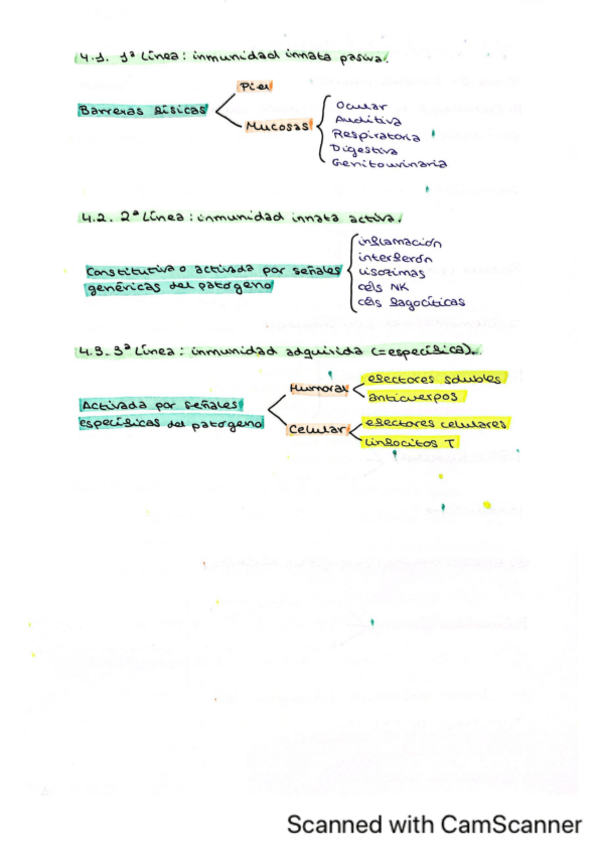 4.1. 1ª Línea: inmunidad innata pasiva.
Barreras físicas
Piel
Mucosas
Ocular
Auditiva
Respiratoria
Digestiva
Genitourinaria
4.2. 2ª Línea: inmunidad innata activa.
Constitutiva o activada por señales
genéricas del patógeno
inflamación
interferón
lisozimas
céls NK
céls fagocíticas
4.3. 3ª Línea: inmunidad adquirida (=específica).
Activada por señales
específicas del patógeno
Humoral
efectores solubles
anticuerpos
Celular
efectores celulares
linfocitos T
Scanned with CamScanner